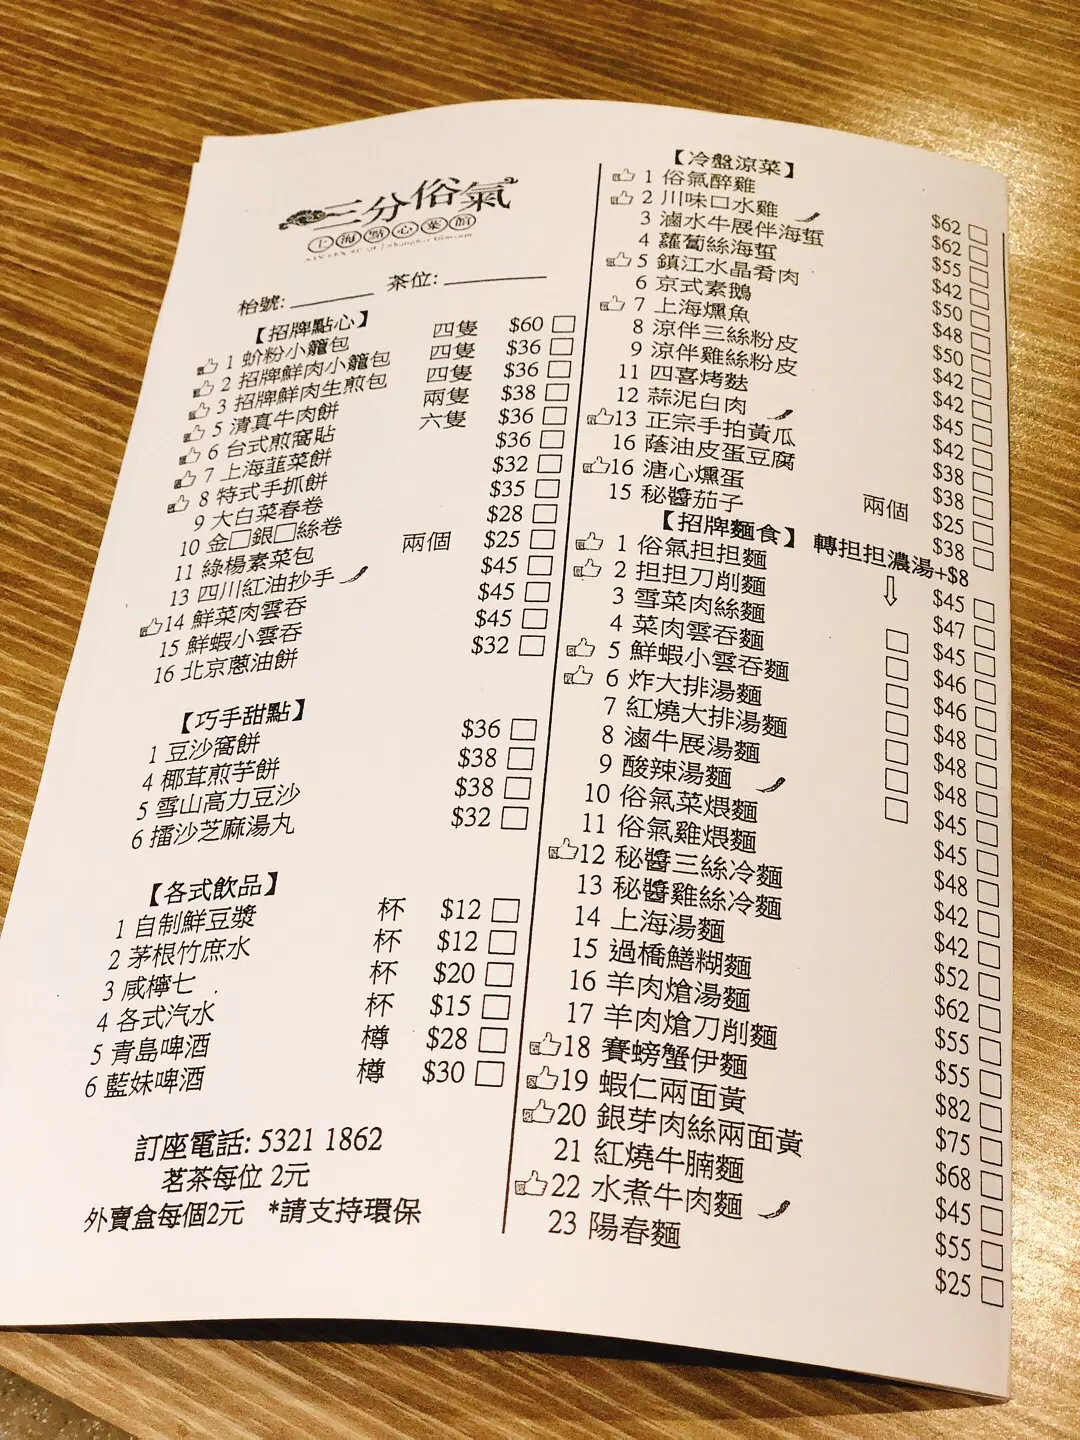 三分俗氣
上海點心菜館
枱號: 茶位:
【招牌點心】
1 蚧粉小籠包 四隻 $60
2 招牌鮮肉小籠包 四隻 $36
3 招牌鮮肉生煎包 四隻 $36
5 清真牛肉餅 兩隻 $38
6 台式煎窩貼 六隻 $36
7 上海韮菜餅 $36
8 特式手抓餅 $32
9 大白菜春卷 $35
10 金□銀□絲卷 $28
11 綠楊素菜包 兩個 $25
13 四川紅油抄手 $45
14 鮮菜肉雲吞 $45
15 鮮蝦小雲吞 $45
16 北京蔥油餅 $32
【巧手甜點】
1 豆沙窩餅 $36
4 椰茸煎芋餅 $38
5 雪山高力豆沙 $38
6 擂沙芝麻湯丸 $32
【各式飲品】
1 自制鮮豆漿 杯 $12
2 茅根竹庶水 杯 $12
3 咸檸七 杯 $20
4 各式汽水 杯 $15
5 青島啤酒 樽 $28
6 藍妹啤酒 樽 $30
訂座電話: 5321 1862
茗茶每位 2元
外賣盒每個2元 *請支持環保
【冷盤涼菜】
1 俗氣醉雞 $62
2 川味口水雞 $62
3 滷水牛展伴海蜇 $55
4 蘿蔔絲海蜇 $42
5 鎮江水晶肴肉 $50
6 京式素鵝 $48
7 上海燻魚 $50
8 涼伴三絲粉皮 $42
9 涼伴雞絲粉皮 $42
11 四喜烤麩 $45
12 蒜泥白肉 $42
13 正宗手拍黃瓜 $38
16 蔭油皮蛋豆腐 $38
16 溏心燻蛋 兩個 $25
15 秘醬茄子 $38
【招牌麵食】 轉担担濃湯+$8
1 俗氣担担麵 $45
2 担担刀削麵 $47
3 雪菜肉絲麵 $45
4 菜肉雲吞麵 $46
5 鮮蝦小雲吞麵 $46
6 炸大排湯麵 $48
7 紅燒大排湯麵 $48
8 滷牛展湯麵 $48
9 酸辣湯麵 $45
10 俗氣菜煨麵 $45
11 俗氣雞煨麵 $48
12 秘醬三絲冷麵 $42
13 秘醬雞絲冷麵 $42
14 上海湯麵 $52
15 過橋鱔糊麵 $62
16 羊肉熗湯麵 $55
17 羊肉熗刀削麵 $55
18 賽螃蟹伊麵 $82
19 蝦仁兩面黃 $75
20 銀芽肉絲兩面黃 $68
21 紅燒牛腩麵 $45
22 水煮牛肉麵 $55
23 陽春麵 $25